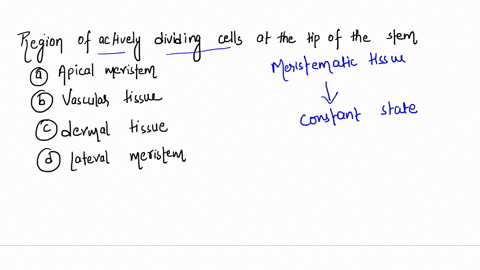 Region of actively dividing cells at the tip of the stem
(a) Apical meristem
(b) Vascular tissue
(c) dermal tissue
(d) lateral meristem
Meristematic tissue
↓
constant state